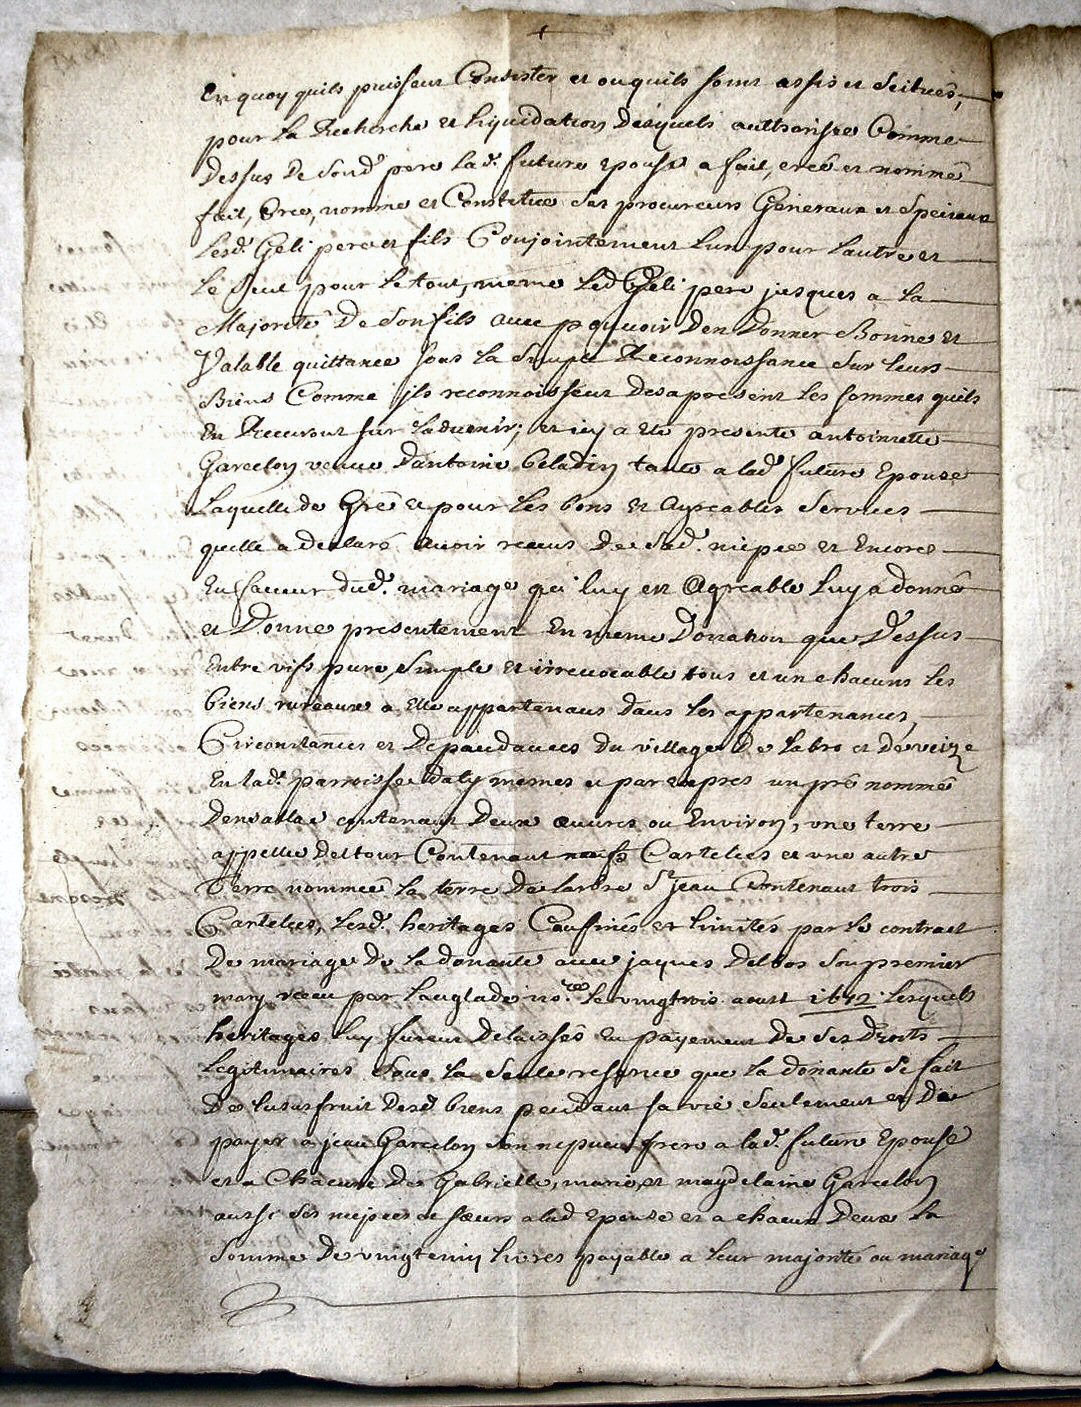 En quoy quils puissent Consister et ou quils soint assis et scitués,
pour la Recherche et liquidation desquels authorisée Comme
Dessus De sond. pere lad. future epouse a fait, creé et nommé
fait, Cree, nomme et Constitue ses procureurs Generaux et speciaux
Lesd. Geli pere et fils Conjointement lun pour lautre et
le seul pour le tout, meme led Geli pere jusques a la
Majorité De son fils avec pouvoir Den Donner Bonne et
Valable quittance sous la simple Reconnoissance sur leurs
Biens Comme ils reconnoissent des a present les sommes quils
En Recevront sur Ladvenir; et icy a eté presente antoinette
Garcelon veuve Dantoine Beladin tante a lad. future Epouse
Laquelle de Gré et pour les bons et agreables services
quelle a declaré avoir receus De sad. niepce et Encore
En faveur dud. mariage qui luy est agreable luy a donné
et Donne presentement En meme Donation que Dessus
Entre vifs pure, simple et irrevocable tous et un chacuns les
biens ruraux a Elle appartenans dans les appartenances,
Circonstances et Depandances du village De labro et de veize
En lad. parroisse daly memes et par expres un pré nommé
Densallas contenant Deux œuvres ou Environ, une terre
appellee Deltour Contenant neuf Cartelees et une autre
terre nommeé la terre De larbre St Jean Contenant trois
Cartelees, lesd. heritages Confinés et limités par le contract
De mariage De la donante avec jaques Delbos son premier
mary receu par Langlade nore. le vingtrois aoust 1692 lesquels
heritages luy furent Delaissés En payement De ses Droits
Legitimaires sous la seule reserve que la donante se fait
De lusufruit Desd. biens pendant sa vie seulement et De
payer a jean Garcelon son nepveu frere a lad. future Epouse
et a Chacune De Gabrielle, marie, et magdelaine Garcelon
aussi ses niepces et sœurs a lad Epouse et a chacun Deux la
somme De vingtcinq livres payable a leur majorité ou mariage